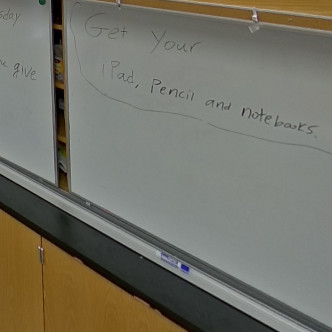 oday
u give
Get Your
iPad, Pencil and notebooks.